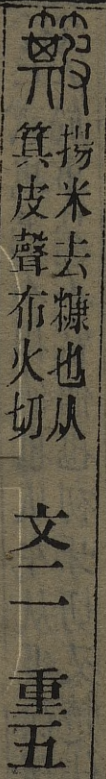 簸
揚米去糠也从
箕皮聲布火切
文二　重五